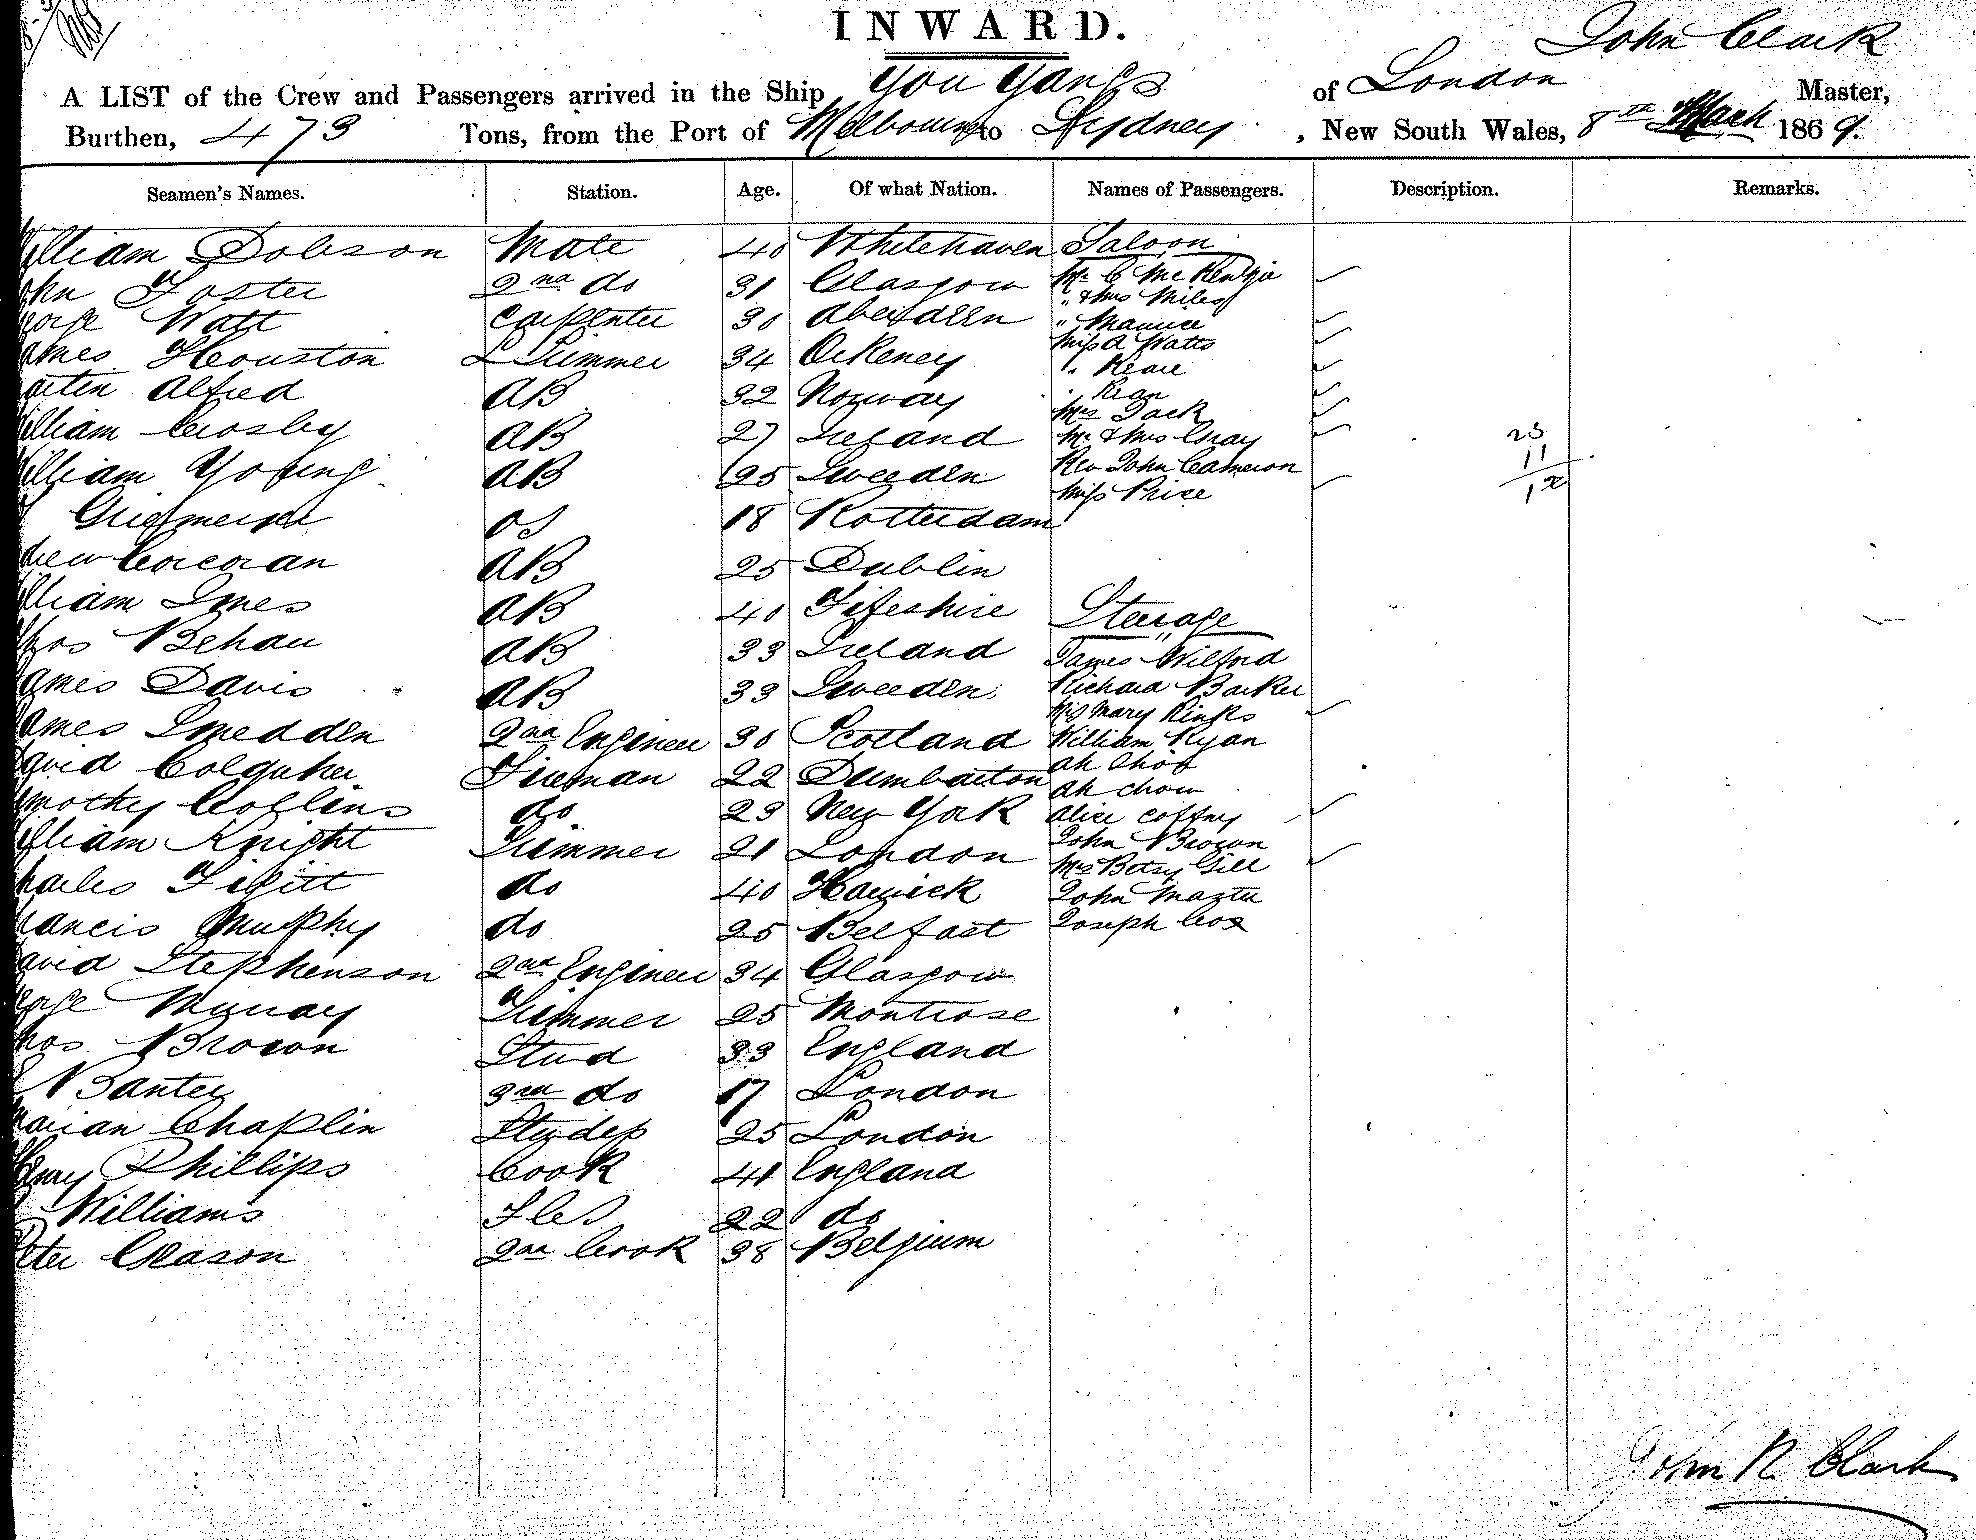 INWARD.
John Clark
A LIST of the Crew and Passengers arrived in the Ship You Yangs of London Master,
Burthen, 473 Tons, from the Port of Melbourne to Sydney, New South Wales, 8th March 1869.
Seamen's Names. Station. Age. Of what Nation. Names of Passengers. Description. Remarks.
William Dobson Mate 40 Whitehaven Saloon
John Foster 2nd do 31 Glasgow Mr C McKenzie
" & Mrs Miles
George Watt Carpenter 30 Aberdeen " Maurice
James Houston L Trimmer 34 Orkeney Miss A Watts
" Keane
Alfred AB 32 Norway " Kean
Mrs Jack
William Crosby AB 27 Ireland Mr & Mrs Gray
23
11
12
William Young AB 25 Sweeden Rev John Cameron
Miss Price
OS 18 Rotterdam
Corcoran AB 25 Dublin
William Imes AB 40 Fifeshire Steerage
Thos Behan AB 33 Ireland James Wilford
James Davis AB 33 Sweeden Richard Barker
Mary Kinks
James Smedden 2nd Engineer 30 Scotland William Ryan
David Colquher Fireman 22 Dumbarton Ah
Ah Chow
Timothy Collins do 23 New York Alice Coffny
William Knight Trimmer 21 London John Brown
Mrs Betsy Gill
Charles do 40 Hawick John
Francis Murphy do 25 Belfast Joseph Cox
David Stephenson 2nd Engineer 34 Glasgow
George Murray Trimmer 25 Montrose
Thos Brown Stud 33 England
Banter 3rd do 17 London
Chaplin Stydes 25 London
Henry Phillips Cook 41 England
Williams 22 do
Peter Gleason 2nd Cook 38 Belgium
John R Clark